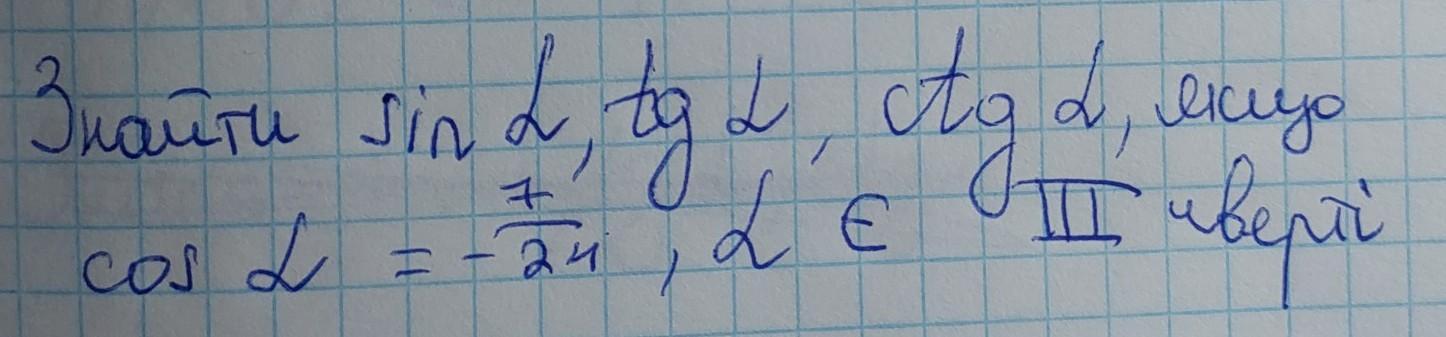 Знайти sin α, tg α, ctg α, якщо
cos α = -7/24, α ∈ III чверті